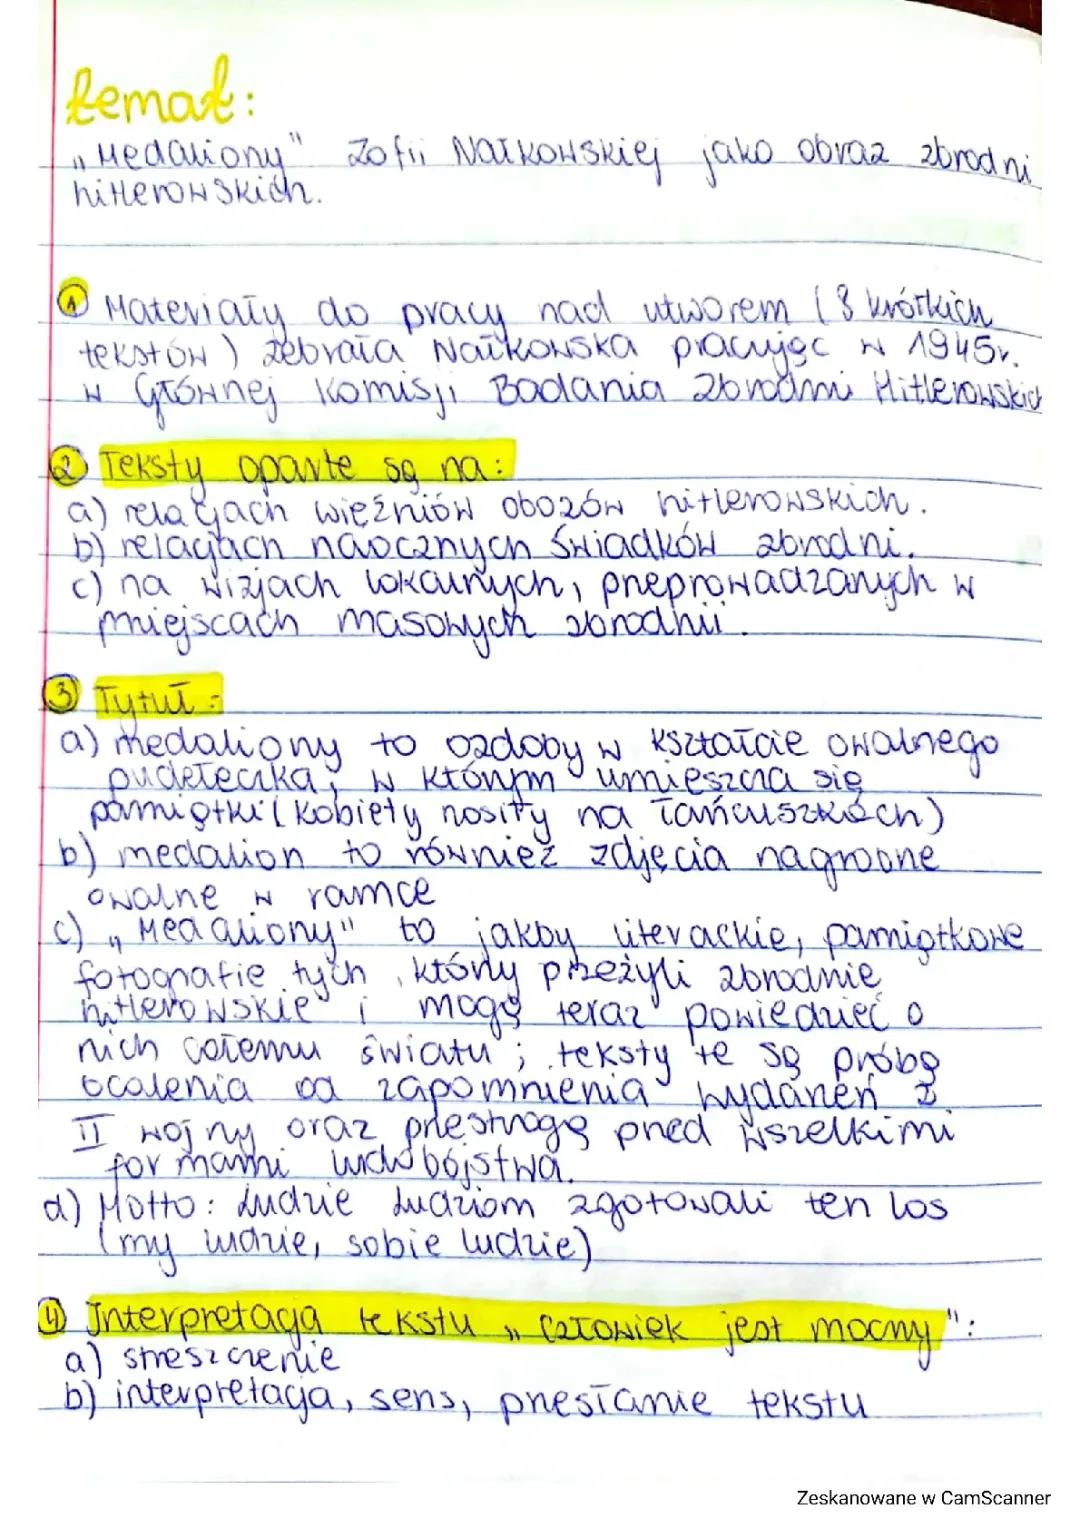 temat:
„Medaliony" Zofii Nałkowskiej jako obraz zbrodni
hitlerowskich.
① Materiały do pracy nad utworem (8 krótkich
tekstów) zebrała Nałkowska pracując w 1945r.
w Głównej Komisji Badania Zbrodni Hitlerowskich
② Teksty oparte są na:
a) relacjach więźniów obozów hitlerowskich.
b) relacjach naocznych świadków zbrodni.
c) na wizjach lokalnych, przeprowadzanych w
miejscach masowych zbrodnii.
③ Tytuł:
a) medaliony to ozdoby w kształcie owalnego
pudełeczka, w którym umieszcza się
pamiątki (kobiety nosiły na łańcuszkach)
b) medalion to również zdjęcia nagrobne
owalne w ramce
c) „Medaliony" to jakby literackie, pamiątkowe
fotografie tych, który przeżyli zbrodnie
hitlerowskie i mogą teraz powiedzieć o
nich całemu światu; teksty te są próbą
ocalenia od zapomnienia wydarzeń z
II wojny oraz przestrogą przed wszelkimi
formami ludobójstwa.
d) Motto: Ludzie ludziom zgotowali ten los
(my ludzie, sobie ludzie)
④ Interpretacja tekstu „Człowiek jest mocny":
a) streszczenie
b) interpretacja, sens, przesłanie tekstu
Zeskanowane w CamScanner